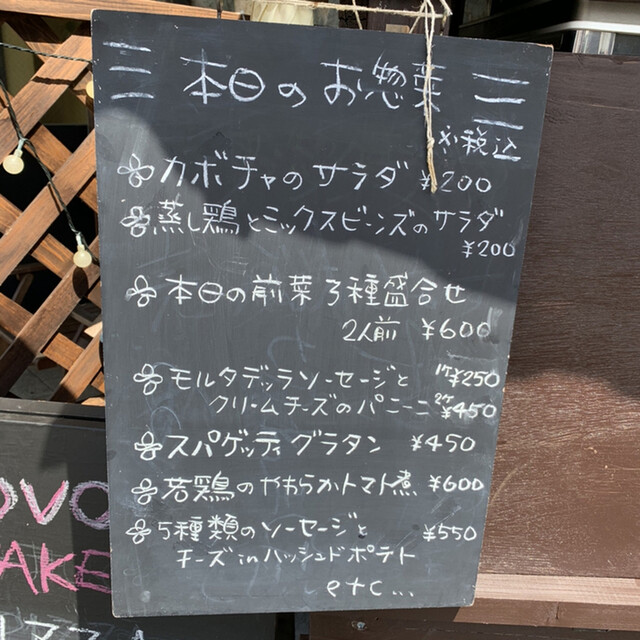 本日のお惣菜
※税込
カボチャのサラダ ¥200
蒸し鶏とミックスビーンズのサラダ
¥200
本日の前菜3種盛合せ
2人前 ¥600
モルタデッラソーセージと 1ヶ¥250
クリームチーズのパニーニ 2ヶ¥450
スパゲッティグラタン ¥450
若鶏のやわらかトマト煮 ¥600
5種類のソーセージと ¥550
チーズinハッシュドポテト
etc...
OVO
AKE